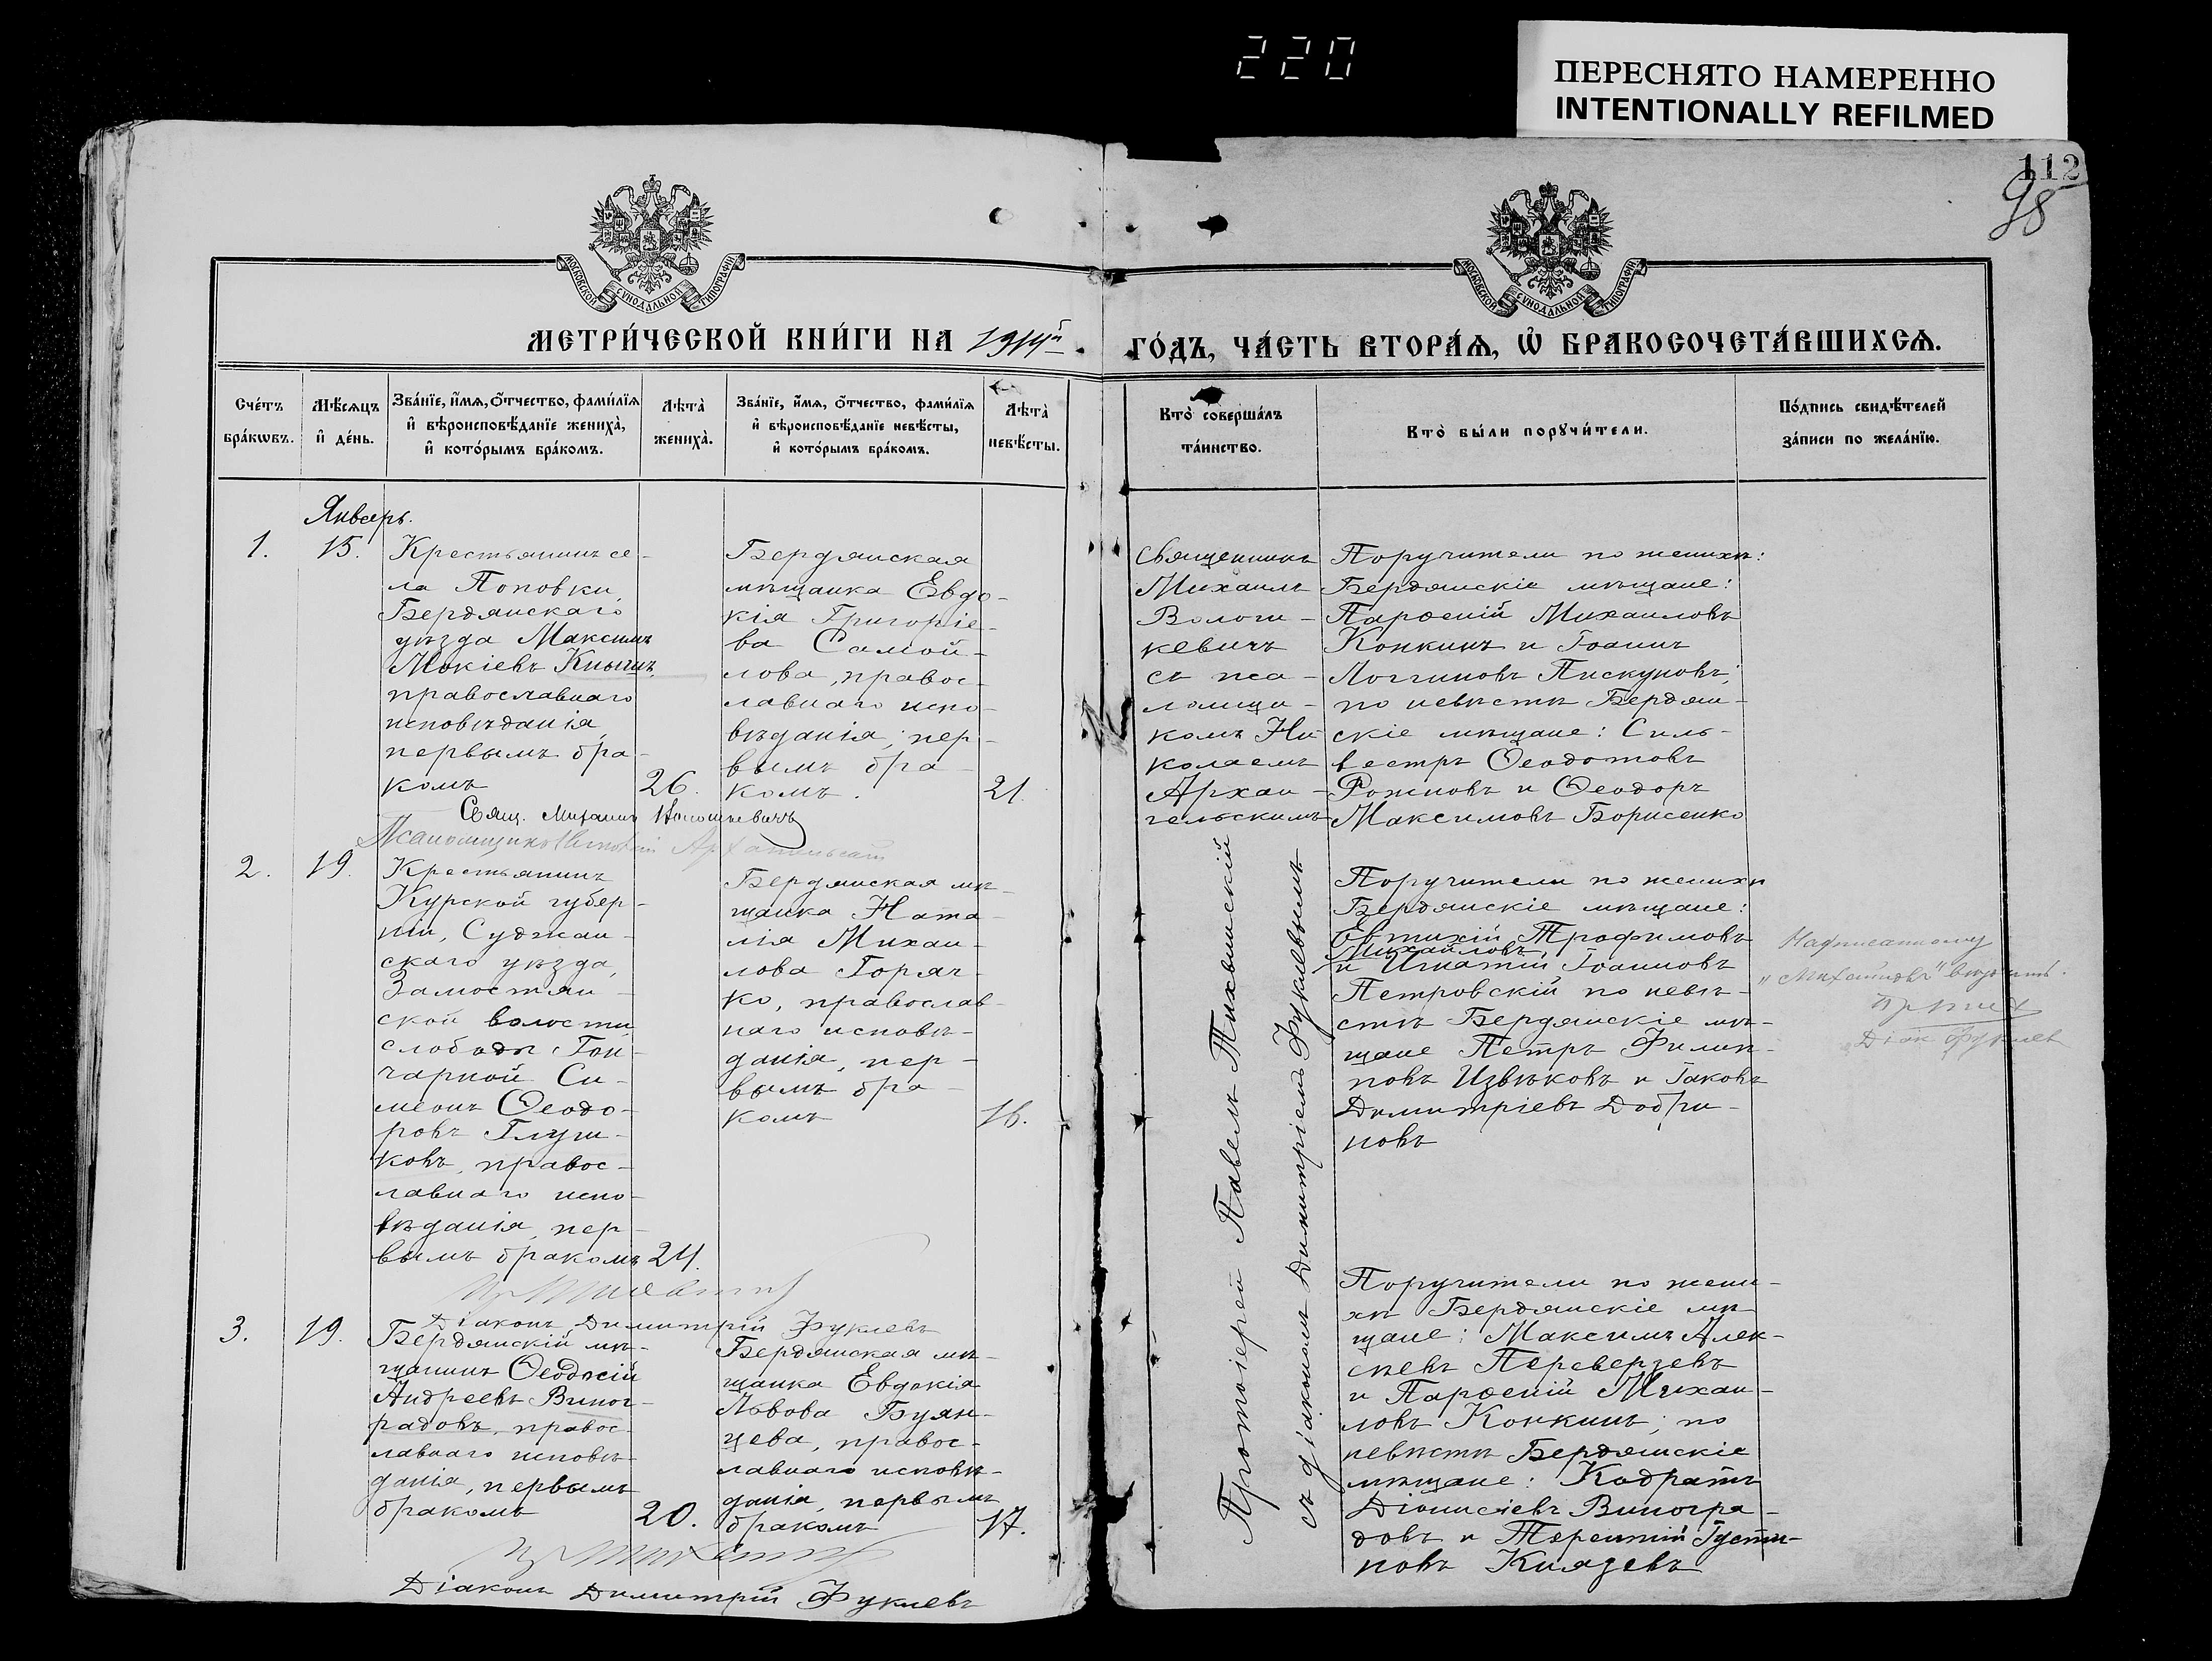 220
ПЕРЕСНЯТО НАМЕРЕННО
INTENTIONALLY REFILMED
112
98
МОСКОВСКОЙ СУНОДАЛЬНОЙ ТИПОГРАФІИ
МОСКОВСКОЙ СУНОДАЛЬНОЙ ТИПОГРАФІИ
МЕТРИ́ЧЕСКОЙ КНИ́ГИ НА 1914й
ГО́ДЪ, ЧА́СТЬ ВТОРА́Ѧ, Ѡ҆ БРАКОСОЧЕТА́ВШИХСѦ.
Сче́тъ
бра́кѡвъ.
Мѣ́сѧцъ
и҆ де́нь.
Зва́нїе, и҆́мѧ, ѻ҆́тчество, фами́лїѧ
и҆ вѣроисповѣ́данїе жениха̀,
и҆ кото́рымъ бра́комъ.
Лѣта̀
жениха̀.
Зва́нїе, и҆́мѧ, ѻ҆́тчество, фами́лїѧ
и҆ вѣроисповѣ́данїе невѣ́сты,
и҆ кото́рымъ бра́комъ.
Лѣта̀
невѣ́сты.
Кто̀ соверша́лъ
та́инство.
Кто̀ бы́ли порꙋчи́тели.
По́дпись свидѣ́телей
за́писи по жела́нїю.
Январь.
1.
15.
Крестьянинъ се-
ла Поповки,
Бердянскаго
уѣзда Максимъ
Мокіевъ Книшъ,
православнаго
исповѣданія,
первымъ бра-
комъ
26.
Бердянская
мѣщанка Евдо-
кія Григоріе-
ва Самой-
лова, правос-
лавнаго испо-
вѣданія, пер-
вымъ бра-
комъ.
21.
Священникъ
Михаилъ
Волош-
кевичъ
съ пса-
ломщи-
комъ Ни-
колаемъ
Архан-
гельскимъ
Поручители по женихѣ:
Бердянскіе мѣщане:
Парѳеній Михаиловъ
Конкинъ и Іоаннъ
Логгиновъ Пискуновъ;
по невѣстѣ Бердян-
скіе мѣщане: Силь-
вестръ Ѳеодотовъ
Рожновъ и Ѳеодоръ
Максимовъ Борисенко
Свящ. Михаилъ Волошкевичъ
Псаломщикъ Николай Архангельскій
2.
19.
Крестьянинъ
Курской губер-
ніи, Суджан-
скаго уѣзда,
Замостян-
ской волости,
слободы Гон-
чарной Си-
меонъ Ѳеодо-
ровъ Глуш-
ковъ, правос-
лавнаго испо-
вѣданія, пер-
вымъ бракомъ
24.
Бердянская мѣ-
щанка Ната-
лія Михаи-
лова Горяч-
ко, православ-
наго исповѣ-
данія, пер-
вымъ бра-
комъ
16.
Протоіерей Павелъ Тихвинскій
съ діакономъ Димитріемъ Фуклевымъ
Поручители по женихѣ
Бердянскіе мѣщане:
Евтихій Трофимовъ
Михайловъ
и Игнатій Іоанновъ
Петровскій по невѣ-
стѣ Бердянскіе мѣ-
щане Петръ Филип-
повъ Извѣковъ и Іаковъ
Димитріевъ Добри-
новъ
Надписанному
„Михайловъ“ вѣрить.
Діак Фуклев
Діаконъ Димитрій Фуклевъ
3.
19.
Бердянскій мѣ-
щанинъ Ѳеодосій
Андреевъ Виног-
радовъ, правос-
лавнаго исповѣ-
данія, первымъ
бракомъ
20.
Бердянская мѣ-
щанка Евдокія
Львова Буян-
цева, правос-
лавнаго исповѣ-
данія, первымъ
бракомъ
17.
Поручители по жени-
хѣ Бердянскіе мѣ-
щане: Максимъ Алек-
сѣевъ Переверзевъ
и Парѳеній Михаи-
ловъ Конкинъ; по
невѣстѣ Бердянскіе
мѣщане: Кодратъ
Діонисіевъ Виногра-
довъ и Терентій Іусти-
новъ Князевъ
Діаконъ Димитрій Фуклевъ